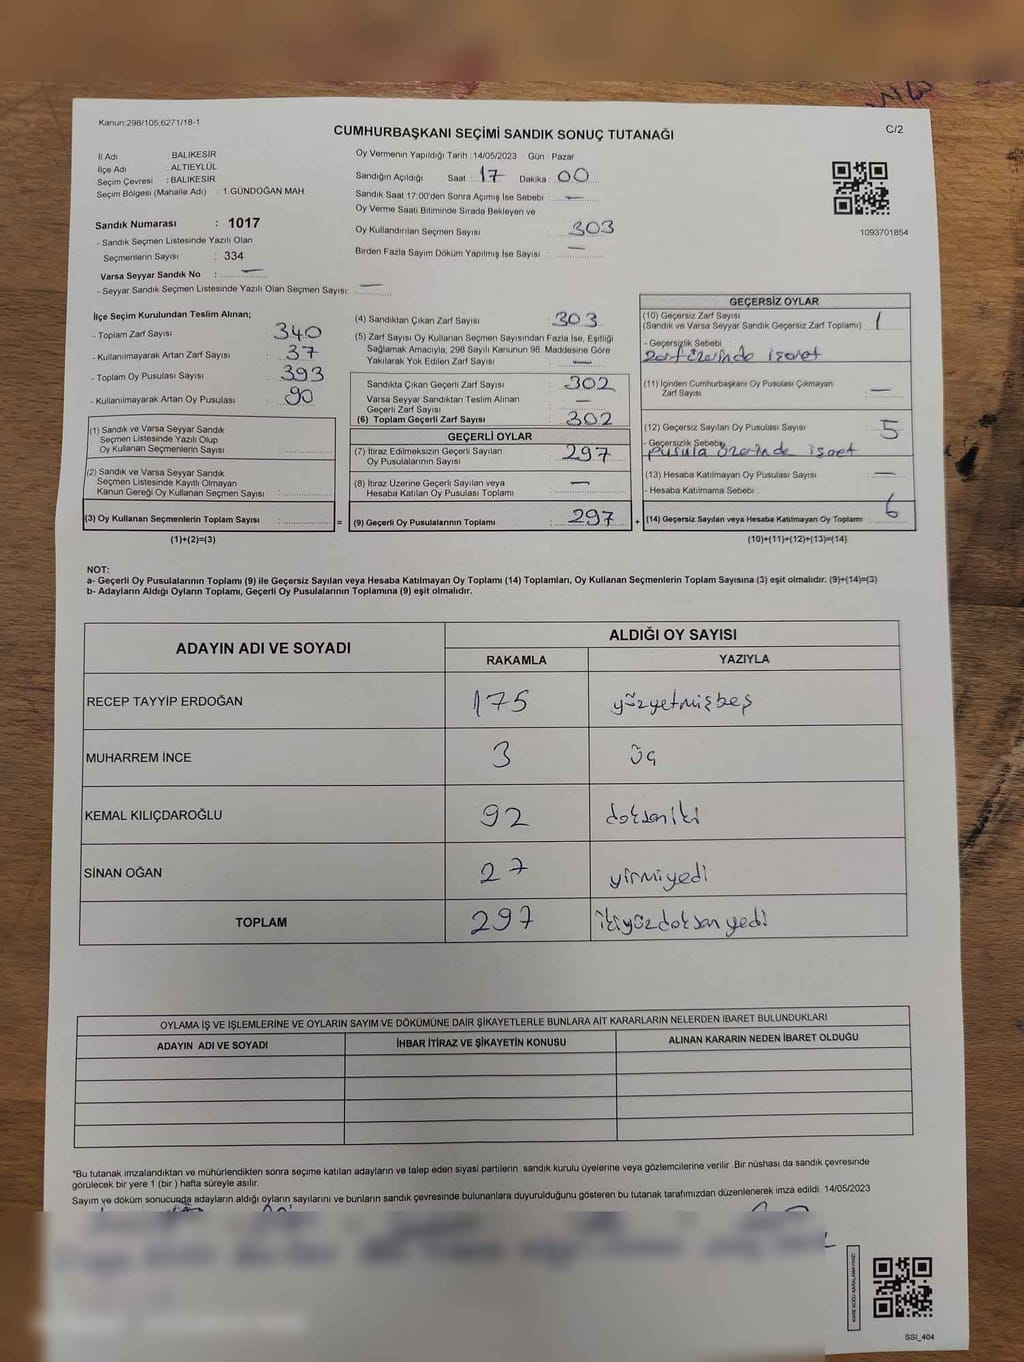 Kanun:298/105,6271/18-1
CUMHURBAŞKANI SEÇİMİ SANDIK SONUÇ TUTANAĞI
C/2
İl Adı : BALIKESİR
İlçe Adı : ALTIEYLÜL
Seçim Çevresi : BALIKESİR
Seçim Bölgesi (Mahalle Adı) : 1.GÜNDOĞAN MAH.
Sandık Numarası : 1017
- Sandık Seçmen Listesinde Yazılı Olan
Seçmenlerin Sayısı : 334
Varsa Seyyar Sandık No : —
- Seyyar Sandık Seçmen Listesinde Yazılı Olan Seçmen Sayısı: —
Oy Vermenin Yapıldığı Tarih :14/05/2023 Gün : Pazar
Sandığın Açıldığı Saat : 17 Dakika : 00
Sandık Saat 17:00'den Sonra Açımış İse Sebebi : —
Oy Verme Saati Bitiminde Sırada Bekleyen ve
Oy Kullandırılan Seçmen Sayısı : 303
Birden Fazla Sayım Döküm Yapılmış İse Sayısı : —
1093701854
İlçe Seçim Kurulundan Teslim Alınan;
- Toplam Zarf Sayısı : 340
- Kullanılmayarak Artan Zarf Sayısı : 37
- Toplam Oy Pusulası Sayısı : 393
- Kullanılmayarak Artan Oy Pusulası : 90
(1) Sandık ve Varsa Seyyar Sandık
Seçmen Listesinde Yazılı Olup
Oy Kullanan Seçmenlerin Sayısı :
(2) Sandık ve Varsa Seyyar Sandık
Seçmen Listesinde Kayıtlı Olmayan
Kanun Gereği Oy Kullanan Seçmen Sayısı :
(3) Oy Kullanan Seçmenlerin Toplam Sayısı : =
(1)+(2)=(3)
(4) Sandıktan Çıkan Zarf Sayısı : 303
(5) Zarf Sayısı Oy Kullanan Seçmen Sayısından Fazla İse, Eşitliği
Sağlamak Amacıyla, 298 Sayılı Kanunun 98. Maddesine Göre
Yakılarak Yok Edilen Zarf Sayısı : —
Sandıkta Çıkan Geçerli Zarf Sayısı : 302
Varsa Seyyar Sandıktan Teslim Alınan
Geçerli Zarf Sayısı : —
(6) Toplam Geçerli Zarf Sayısı : 302
GEÇERLİ OYLAR
(7) İtiraz Edilmeksizin Geçerli Sayılan
Oy Pusulalarının Sayısı : 297
(8) İtiraz Üzerine Geçerli Sayılan veya
Hesaba Katılan Oy Pusulası Toplamı : —
(9) Geçerli Oy Pusulalarının Toplamı : 297 +
GEÇERSİZ OYLAR
(10) Geçersiz Zarf Sayısı
(Sandık ve Varsa Seyyar Sandık Geçersiz Zarf Toplamı) : 1
- Geçersizlik Sebebi :
zarf üzerinde işaret
(11) İçinden Cumhurbaşkanı Oy Pusulası Çıkmayan
Zarf Sayısı : —
(12) Geçersiz Sayılan Oy Pusulası Sayısı : 5
- Geçersizlik Sebebi:
pusula üzerinde işaet
(13) Hesaba Katılmayan Oy Pusulası Sayısı : —
- Hesaba Katılmama Sebebi :
(14) Geçersiz Sayılan veya Hesaba Katılmayan Oy Toplamı : 6
(10)+(11)+(12)+(13)=(14)
NOT:
a- Geçerli Oy Pusulalarının Toplamı (9) ile Geçersiz Sayılan veya Hesaba Katılmayan Oy Toplamı (14) Toplamları, Oy Kullanan Seçmenlerin Toplam Sayısına (3) eşit olmalıdır. (9)+(14)=(3)
b- Adayların Aldığı Oyların Toplamı, Geçerli Oy Pusulalarının Toplamına (9) eşit olmalıdır.
ADAYIN ADI VE SOYADI
ALDIĞI OY SAYISI
RAKAMLA YAZIYLA
RECEP TAYYİP ERDOĞAN 175 yüzyetmişbeş
MUHARREM İNCE 3 üç
KEMAL KILIÇDAROĞLU 92 doksaniki
SİNAN OĞAN 27 yirmiyedi
TOPLAM 297 ikiyüzdoksanyedi
OYLAMA İŞ VE İŞLEMLERİNE VE OYLARIN SAYIM VE DÖKÜMÜNE DAİR ŞİKAYETLERLE BUNLARA AİT KARARLARIN NELERDEN İBARET BULUNDUKLARI
ADAYIN ADI VE SOYADI İHBAR İTİRAZ VE ŞİKAYETİN KONUSU ALINAN KARARIN NEDEN İBARET OLDUĞU
*Bu tutanak imzalandıktan ve mühürlendikten sonra seçime katılan adayların ve talep eden siyasi partilerin sandık kurulu üyelerine veya gözlemcilerine verilir .Bir nüshası da sandık çevresinde
görülecek bir yere 1 (bir ) hafta süreyle asılır.
Sayım ve döküm sonucunda adayların aldığı oyların sayılarını ve bunların sandık çevresinde bulunanlara duyurulduğunu gösteren bu tutanak tarafımızdan düzenlenerek imza edildi. 14/05/2023
KARE KODU KARALAMAYINIZ!
SSI_404